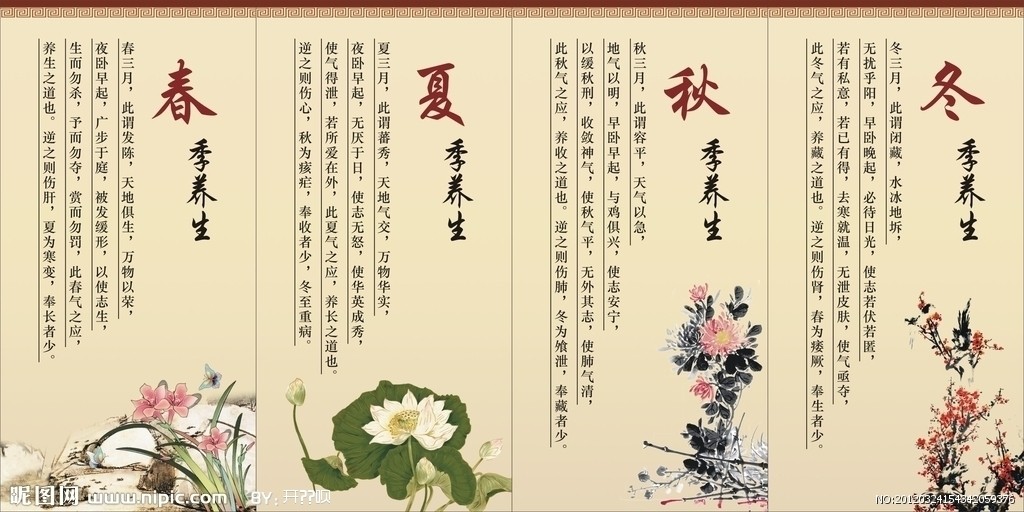 春
季养生
春三月，此谓发陈，天地俱生，万物以荣，
夜卧早起，广步于庭，被发缓形，以使志生，
生而勿杀，予而勿夺，赏而勿罚，此春气之应，
养生之道也。逆之则伤肝，夏为寒变，奉长者少。
夏
季养生
夏三月，此谓蕃秀，天地气交，万物华实，
夜卧早起，无厌于日，使志无怒，使华英成秀，
使气得泄，若所爱在外，此夏气之应，养长之道也。
逆之则伤心，秋为痎疟，奉收者少，冬至重病。
秋
季养生
秋三月，此谓容平，天气以急，
地气以明，早卧早起，与鸡俱兴，使志安宁，
以缓秋刑，收敛神气，使秋气平，无外其志，使肺气清，
此秋气之应，养收之道也。逆之则伤肺，冬为飧泄，奉藏者少。
冬
季养生
冬三月，此谓闭藏，水冰地坼，
无扰乎阳，早卧晚起，必待日光，使志若伏若匿，
若有私意，若已有得，去寒就温，无泄皮肤，使气亟夺，
此冬气之应，养藏之道也。逆之则伤肾，春为痿厥，奉生者少。
昵图网 www.nipic.com BY：开??呗
NO:20120324154342059376